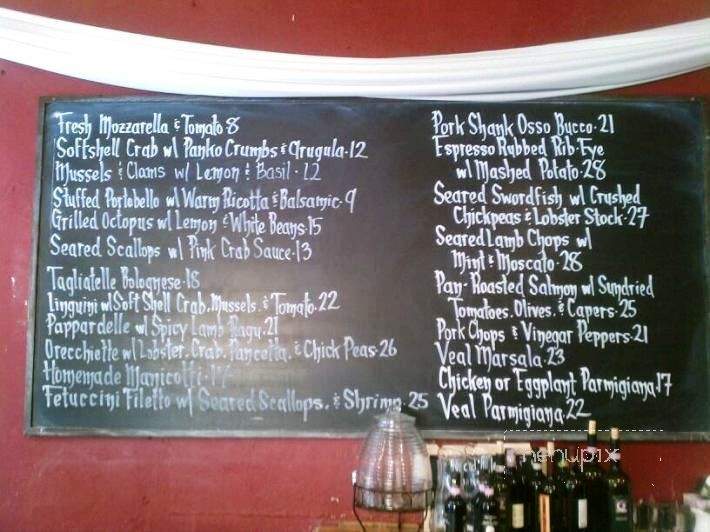 Fresh Mozzarella & Tomato·8
Softshell Crab w/ Panko Crumbs & Arugula·12
Mussels & Clams w/ Lemon & Basil·12
Stuffed Portobello w/ Warm Ricotta & Balsamic·9
Grilled Octopus w/ Lemon & White Beans·15
Seared Scallops w/ Pink Crab Sauce·13
Tagliatelle Bolognese·18
Linguini w/ Soft Shell Crab, Mussels, & Tomato·22
Pappardelle w/ Spicy Lamb Ragu·21
Orecchiette w/ Lobster, Crab, Pancetta, & Chick Peas·26
Homemade Manicotti·17
Fetuccini Filetto w/ Seared Scallops, & Shrimp 25
Pork Shank Osso Bucco·21
Espresso Rubbed Rib-Eye
w/ Mashed Potato·28
Seared Swordfish w/ Crushed
Chickpeas & Lobster Stock·27
Seared Lamb Chops w/
Mint & Moscato·28
Pan-Roasted Salmon w/ Sundried
Tomatoes, Olives, & Capers·25
Pork Chops & Vinegar Peppers·21
Veal Marsala·23
Chicken or Eggplant Parmigiana·17
Veal Parmigiana·22
menupix